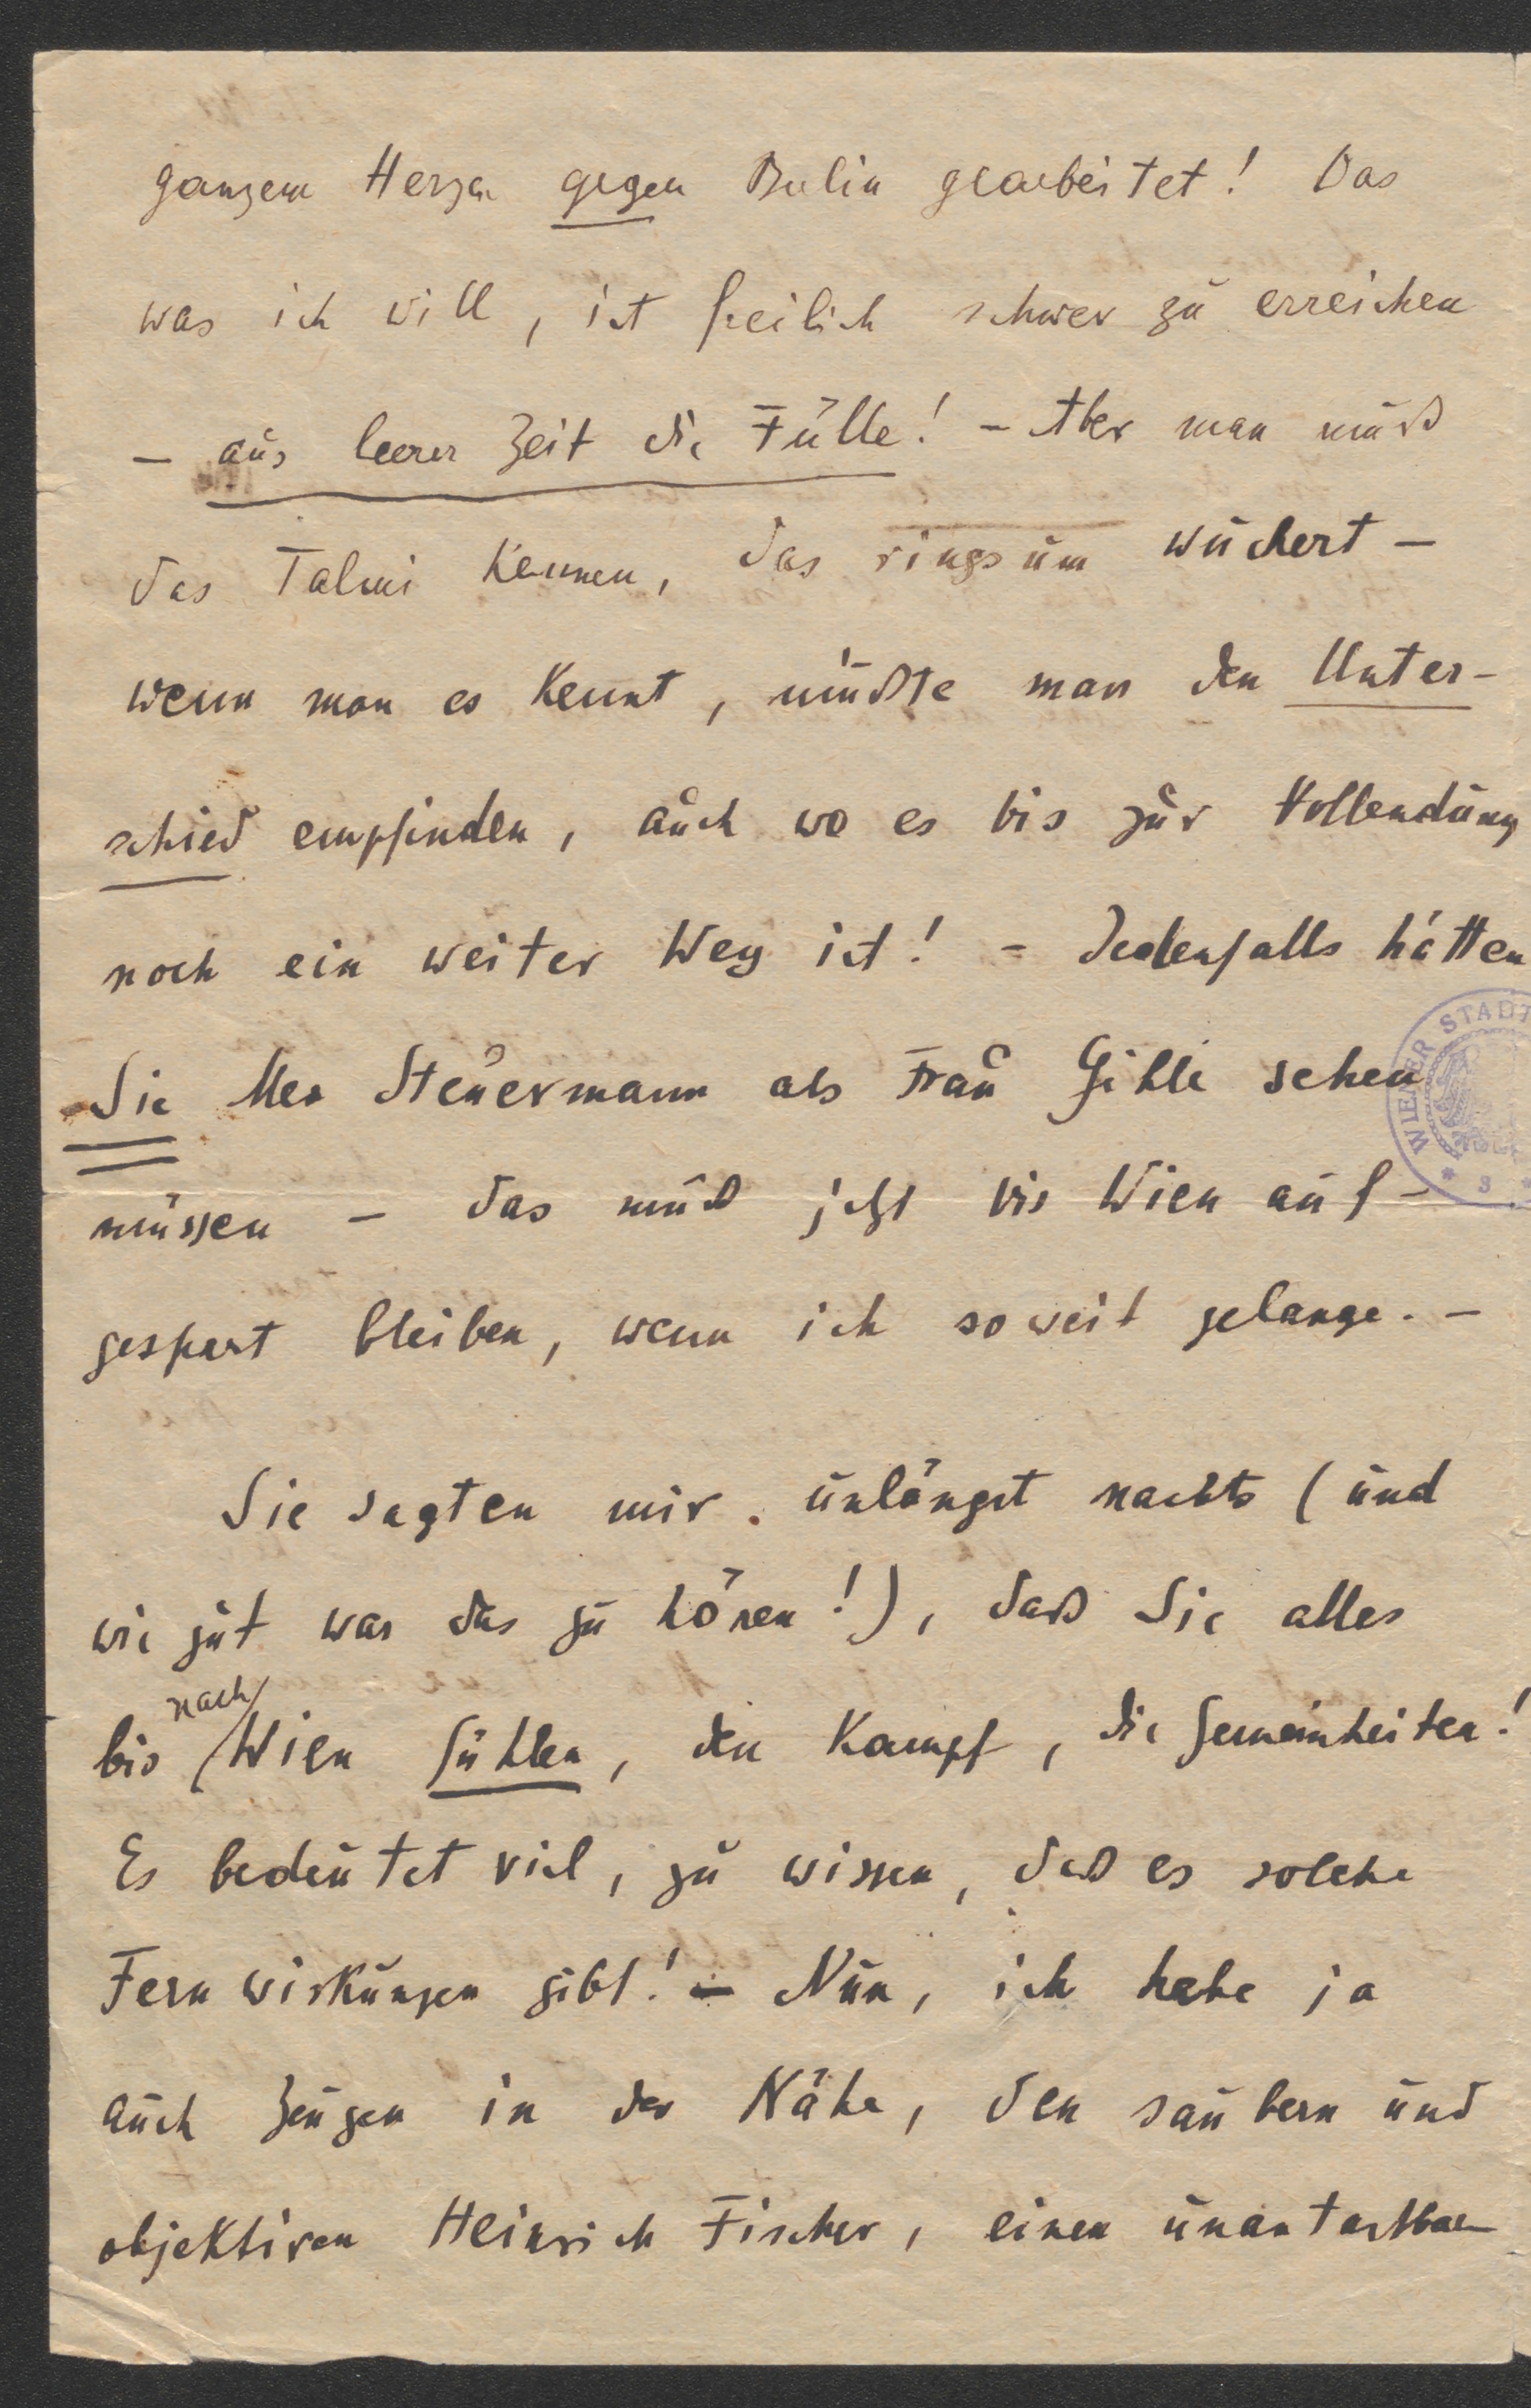 ganzem Herzen gegen Berlin gearbeitet! Das
was ich will, ist freilich schwer zu erreichen
– aus leerer Zeit die Fülle! – Aber man muß
das Talmi kennen, das ringsum wuchert –
wenn man es kennt, müßte man den Unter-
schied empfinden, auch wo es bis zur Vollendung
noch ein weiter Weg ist! – Jedenfalls hätten
Sie Mea Steuermann als Frau Gihle sehen
müssen – das muß jetzt bis Wien auf-
gespart bleiben, wenn ich soweit gelange. –
Sie sagten mir unlängst nachts (und
wie gut war das zu hören!), daß Sie alles
bis nach Wien fühlen, den Kampf, die Gemeinheiten!
Es bedeutet viel, zu wissen, daß es solche
Fernwirkungen gibt! – Nun, ich habe ja
auch Zeugen in der Nähe, den saubern und
objektiven Heinrich Fischer, einen unantastbaren
WIENER STADT